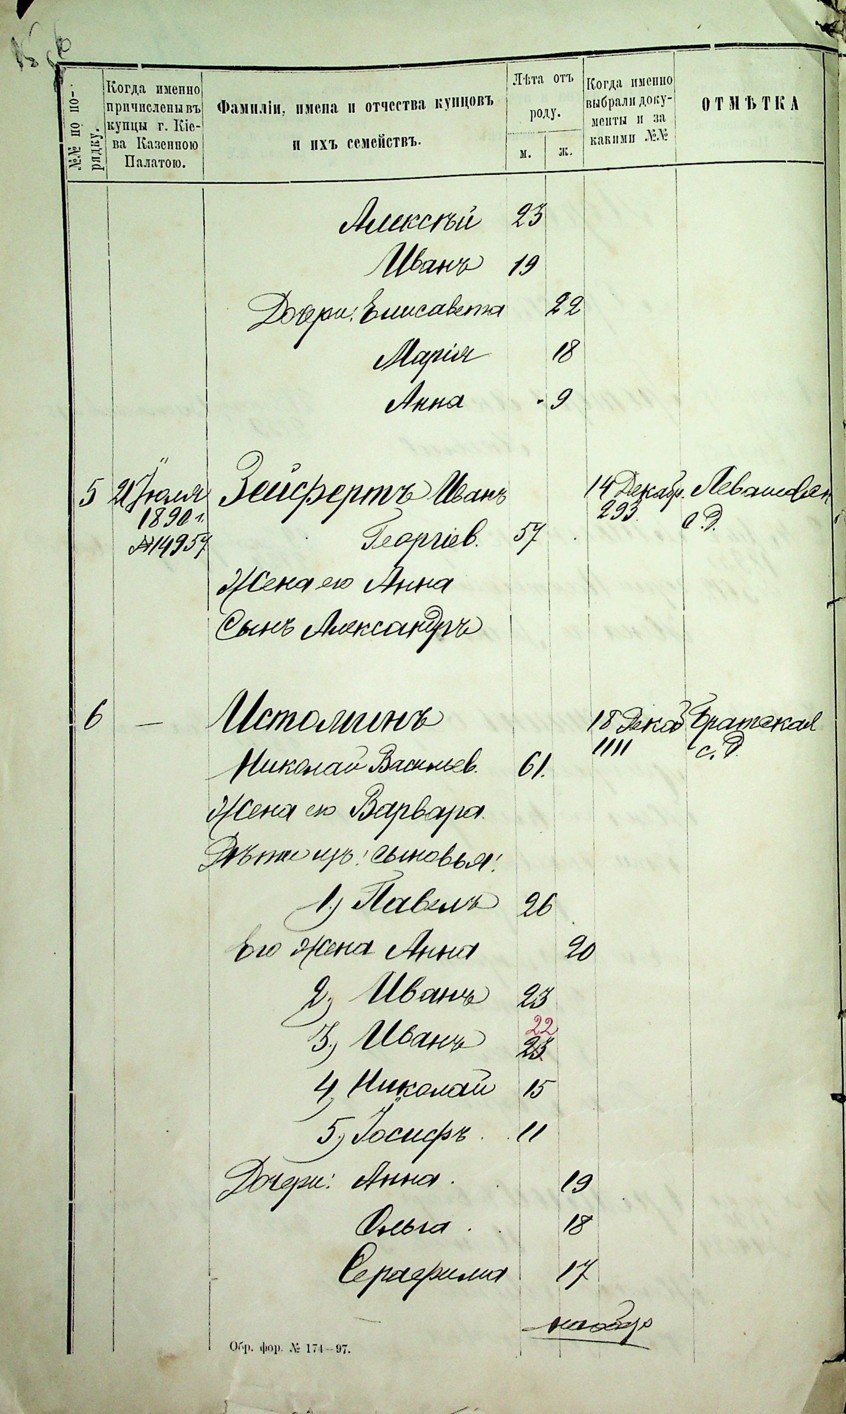 №№ по по-
рядку.
Когда именно
причислены въ
купцы г. Кіе-
ва Казенною
Палатою.
Фамиліи, имена и отчества купцовъ
и ихъ семействъ.
Лѣта отъ
роду.
м.
ж.
Когда именно
выбрали доку-
менты и за
какими №№
ОТМѢТКА
Алексѣй 23
Иванъ 19
Дочери: Елисавета 22
Марія 18
Анна 9
5 21 Іюля Зейфертъ Иванъ 14 Декабр.
1890 г. 293 с. Д.
№14957 Георгіев. 57
Жена его Анна
Сынъ Александръ
6 — Истоминъ 18 Декаб Братская
1111 с. Д.
Николай Васильев. 61.
Жена его Варвара
Дѣти ихъ: сыновья:
1) Павелъ 26
Его жена Анна 20
2) Иванъ 23
22
3) Иванъ 23
4) Николай 15
5) Іосифъ 11
Дочери: Анна 19
Ольга 18
Серафима 17
Обр. фор. № 174—97.